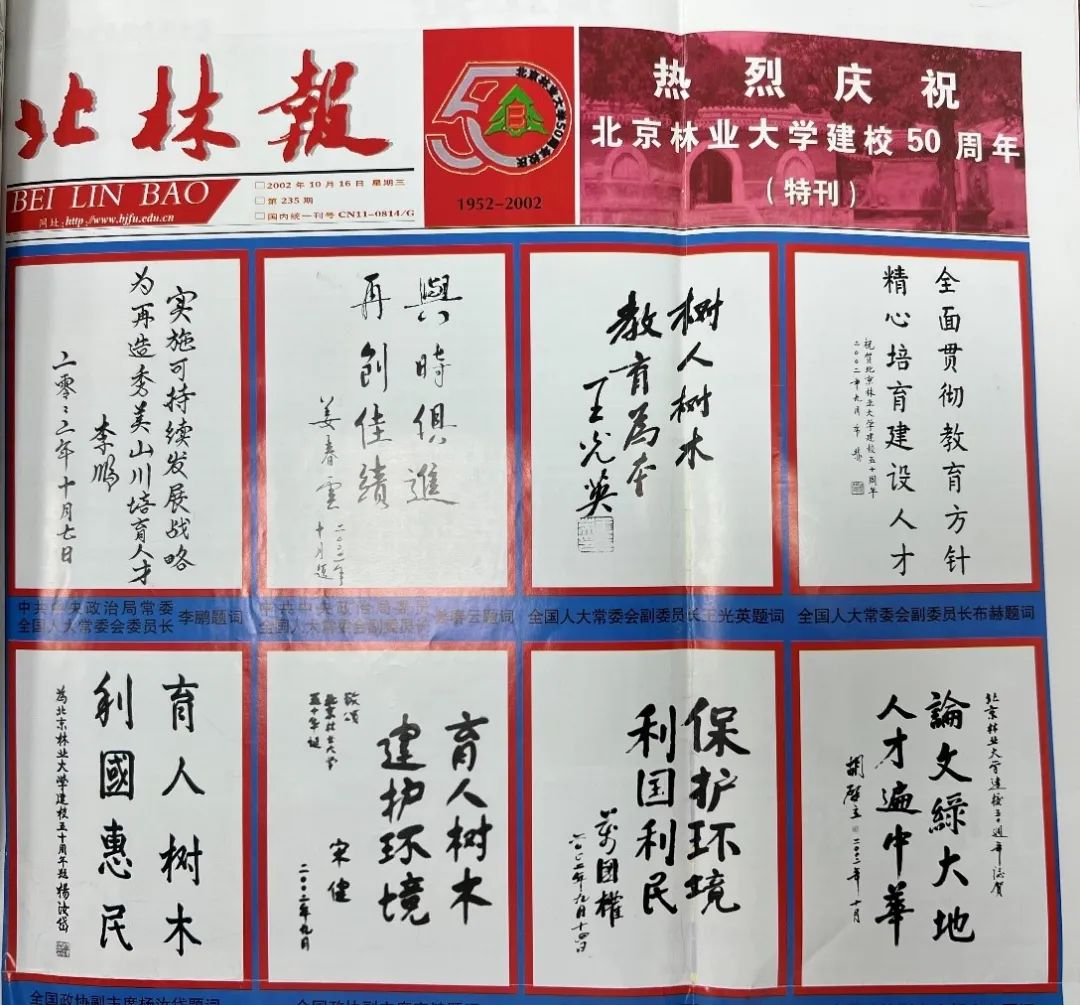 北林報
BEI LIN BAO
网址:http://www.bjfu.edu.cn
□2002年10月16日 星期三
□第235期
□国内统一刊号CN11-0814/G
50
北京林业大学50周年校庆
1952-2002
热烈庆祝
北京林业大学建校50周年
(特刊)
实施可持续发展战略
为再造秀美山川培育人才
李鹏
二零零二年十月七日
與時俱進
再创佳績
姜春雲
二〇〇二年
十月题
树人树木
教育為本
王光英
全面贯彻教育方针
精心培育建设人才
祝贺北京林业大学建校五十周年
二〇〇二年九月 布赫
中共中央政治局常委
全国人大常委会委员长
李鹏题词
中共中央政治局委员
全国人大常委会副委员长
姜春云题词
全国人大常委会副委员长王光英题词
全国人大常委会副委员长布赫题词
育人树木
利國惠民
為北京林业大学建校五十周年题 杨汝岱
育人树木
建护环境
敬颂
北京林业大学
五十华诞
宋健
二〇〇二年九月
保护环境
利国利民
萬國權
二〇〇二年九月十四日
北京林业大学建校五十週年誌賀
論文綠大地
人才遍中華
胡啓立
二〇〇二年十月
全国政协副主席杨汝岱题词
全国政协副主席宋健题词